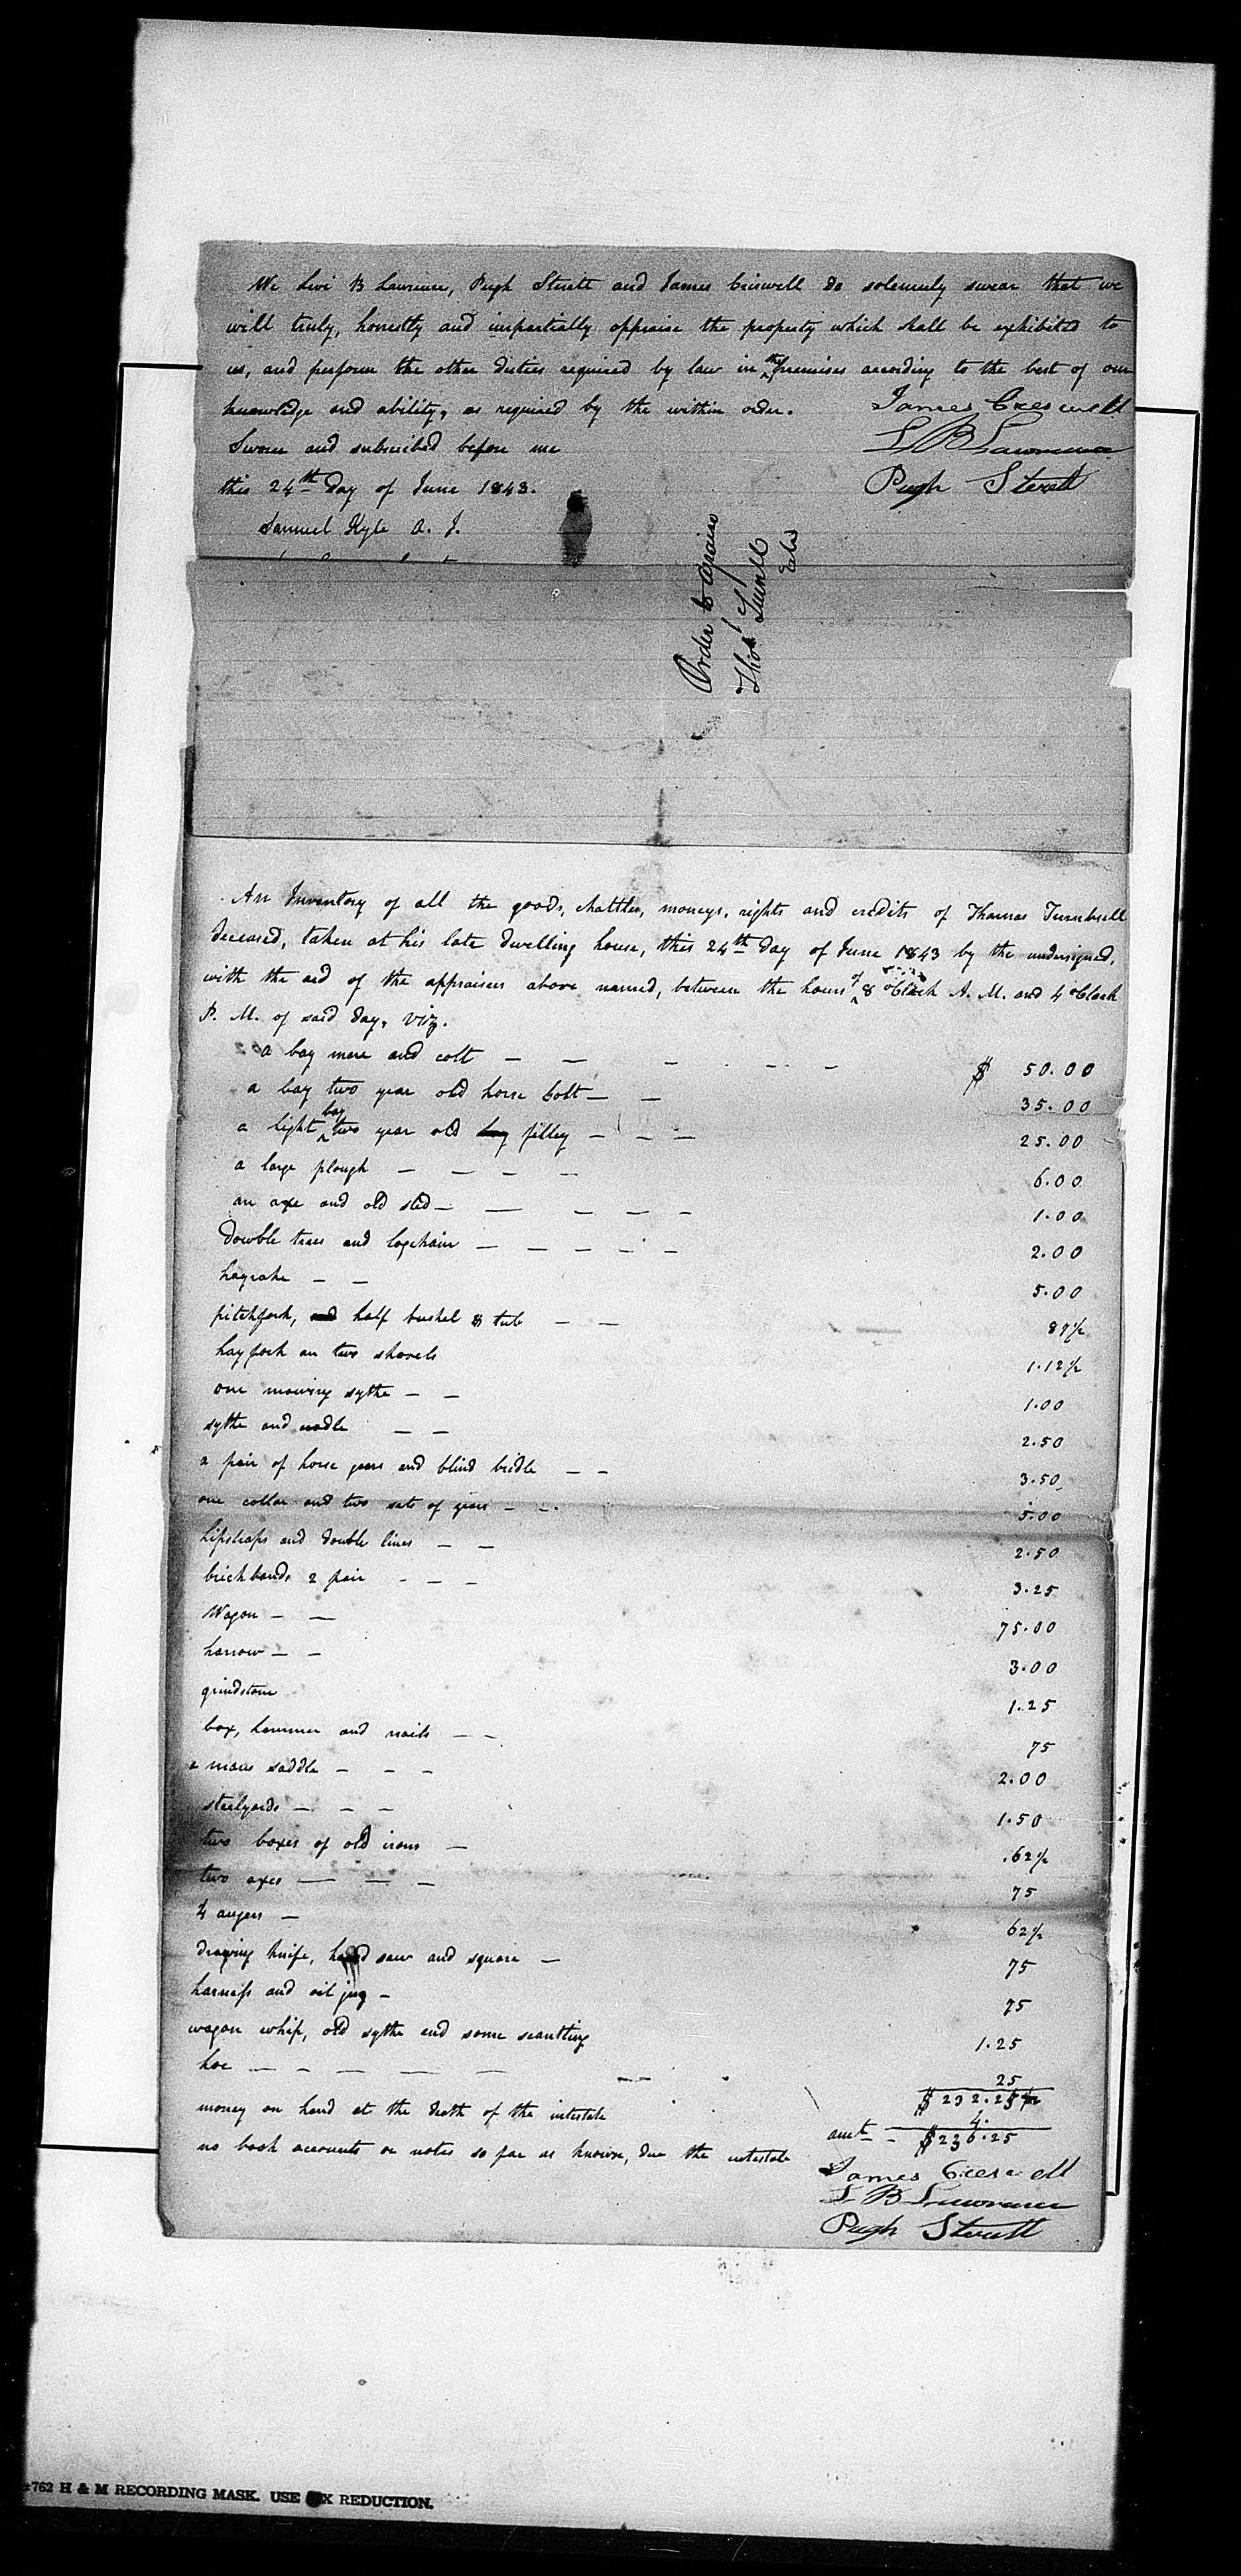 We Levi B Lawrence, Pugh Sterett and James Criswell do solemnly swear that we
will truly, honestly and impartially appraise the property which shall be exhibited to
us, and perform the other duties required by law in the premises according to the best of our
knowledge and ability, as required by the within order. James Creswell
Sworn and subscribed before me L B Lawrence
this 24th day of June 1843. Pugh Sterett
Samuel Kyle A. J.
Order to apraise
Thos
An Inventory of all the goods, chattles, moneys, rights and credits of Thomas Turnbull
deceased, taken at his late dwelling house, this 24th day of June 1843 by the undersigned,
with the aid of the appraisers above named, between the hours of 8 oClock A. M. and 4 oClock
P. M. of said day, viz.
a bay mare and colt — — — — $ 50.00
a bay two year old horse Colt — — 35.00
a light bay two year old bay filley — — — 25.00
a large plough — — — — 6.00
an axe and old sled — — — — — 1.00
Dowble trees and logchain — — — — — 2.00
hayrake — — 5.00
pitchfork, and half bushel & tub — — 87½
hay fork an two shovels 1.12½
one mowing sythe — — 1.00
sythe and cradle — — 2.50
a pair of horse gears and blind bridle — — 3.50
one collar and two sets of gears — — 5.00
hipstraps and double lines — — 2.50
brichbands 2 pair — — — 3.25
Wagon — — 75.00
harrow — — 3.00
grindstone 1.25
box, hammer and nails — — 75
a mans saddle — — — 2.00
steelyards — — — 1.50
two boxes of old irons — .62½
two axes — — — 75
4 augers — 62½
drawing knife, hand saw and square — 75
harness and oil jug — 75
wagon whip, old sythe and some scantling 1.25
hoe — — — — — — 25
$ 232.25
money on hand at the death of the intestate 4.
amt — $236.25
no book accounts or notes so far as known, due the intestate
James Creswell
L B Lawrence
Pugh Sterett
#762 H & M RECORDING MASK. USE X REDUCTION.